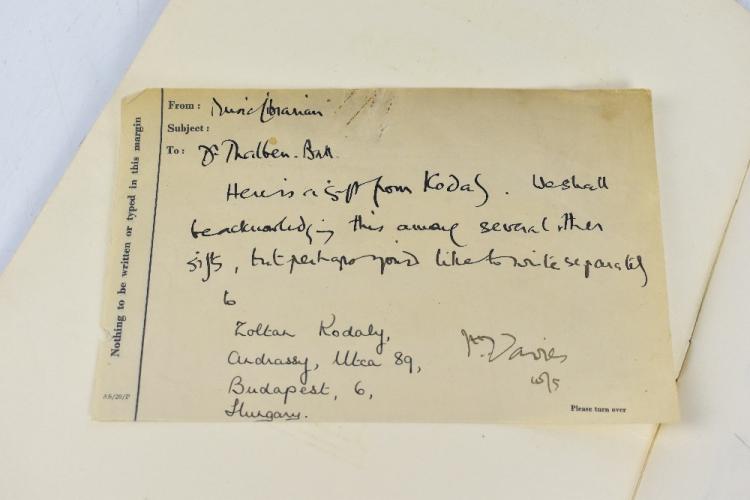 From: Music Librarian
Subject:
To: Dr Thalben-Ball.
Here is a gift from Kodaly. We shall
be acknowledging this among several other
gifts, but perhaps you'd like to write separately
to
Zoltan Kodaly,
Andrassy, Utca 89,
Budapest, 6,
Hungary.
Davies
10/5
Please turn over
Nothing to be written or typed in this margin